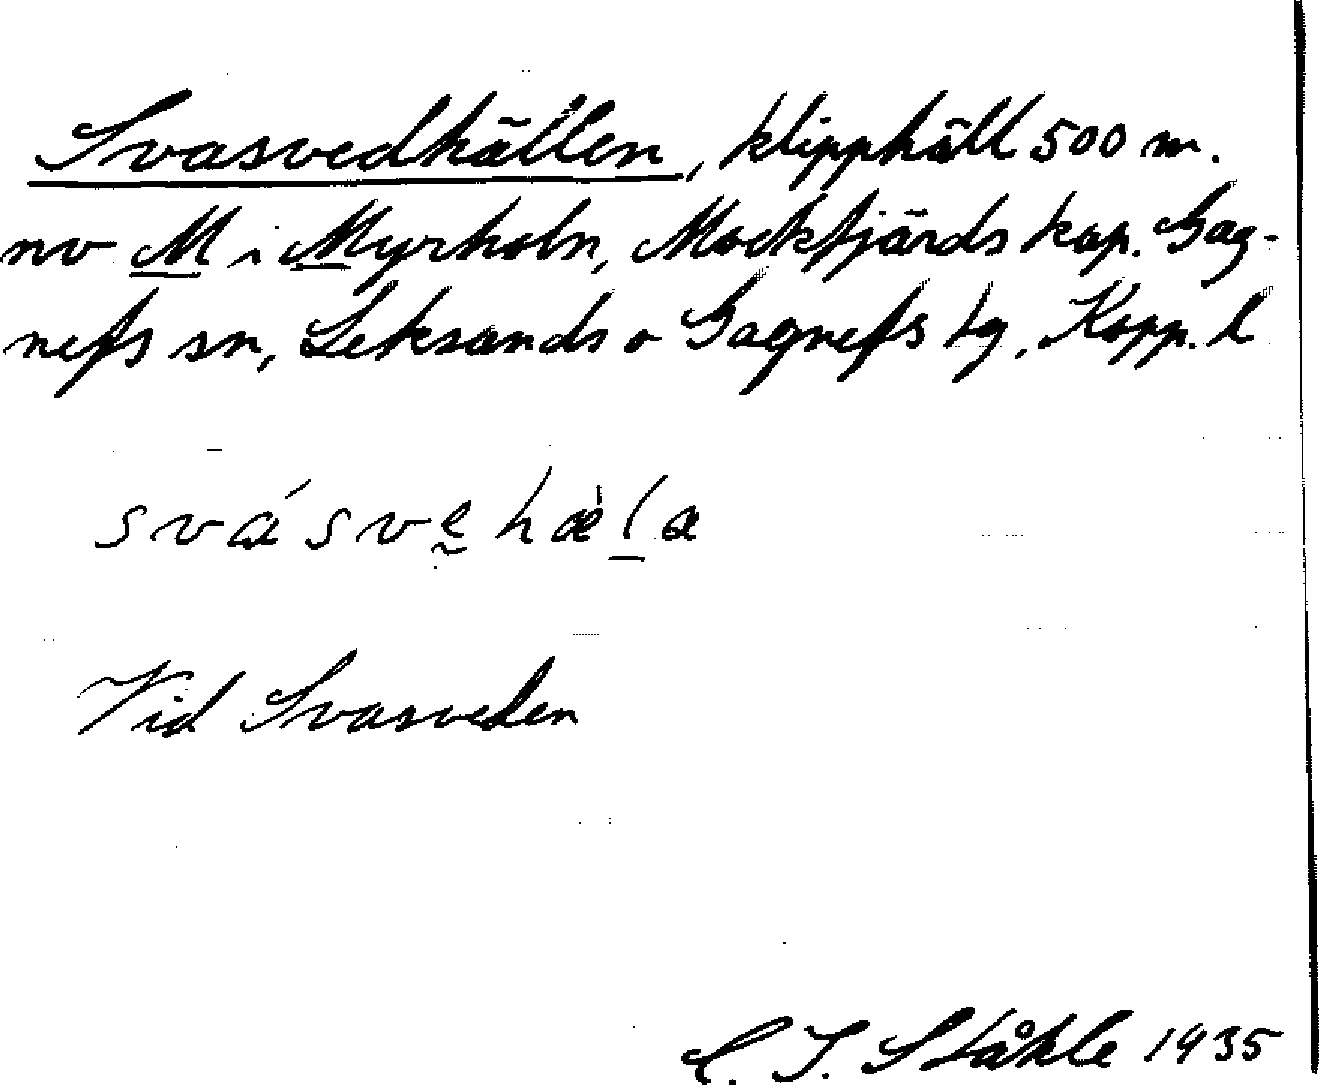 Svasvedhällen, klipphäll 500 m.
nv M i Myrholn, Mockfjärds kap. Gag-
nefs sn, Leksands o Gagnefs tg, Kopp. l
svásve̬hæ̀l̠a
Vid Svasveden
C. I. Ståhle 1935